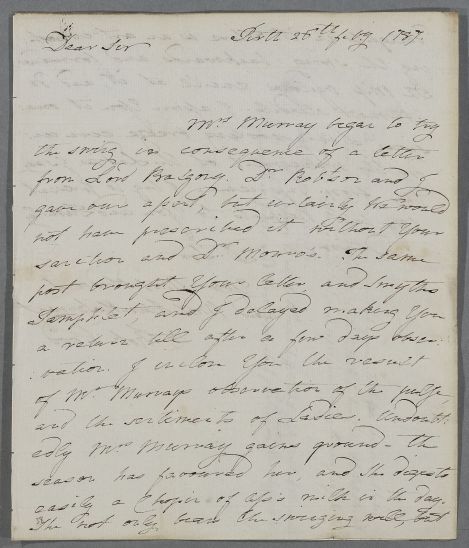 Dear Sir Perth 26th feby. 1787.
Mrs Murray began to try
the swing in consequence of a letter
from Lord Balgony. Dr. Robtson and I
gave our assent, but certainly he would
not have prescribed it without Your
sanction and Dr. Monro's. The same
post brought Your letter and Smyths
Pamphlet and I delayed making You
a return till after a few days obser:
:vation. I inclose You the result
of Mr Murrays observation of the pulse,
and the sentiments of Ladie. Undoubt:
edly Mrs Murray gains ground - the
season has favoured her, and she digests
easily a Chopin of Ass's milk in the day.
She not only bears the swinging well, but